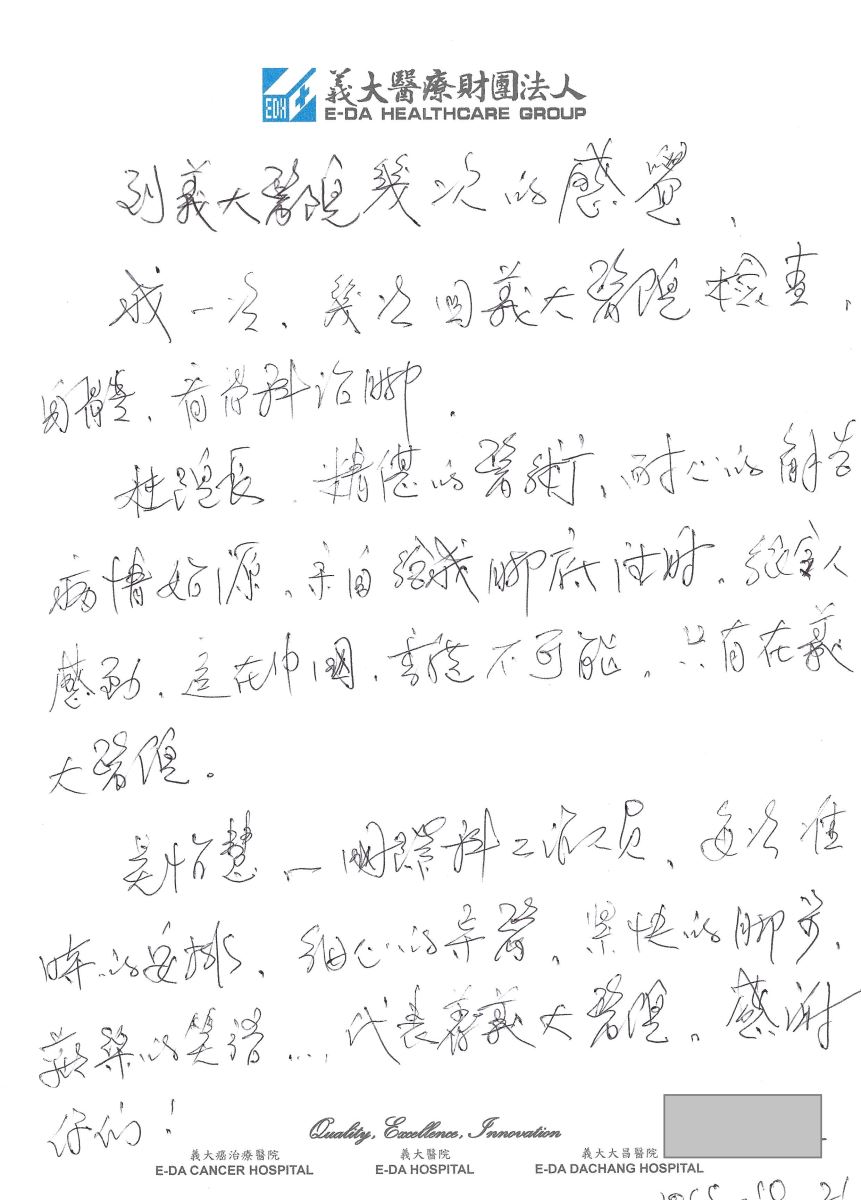 義大醫療財團法人
E-DA HEALTHCARE GROUP
到義大醫院幾次的感覺,
成一次、幾次回義大醫院檢查,
身體、看骨科治腳.
杜院長、精湛的醫術,耐心的解答
病情始源、親自給我腳底注射,給全人
感動,這在中國,可能不可能,只有在義
大醫院。
吳怡慧、一國際科工作人員、每次准
時的安排、細心的導醫、緊快的腳步、
歡樂的笑語...,代表著義大醫院,感謝
你們!
Quality, Excellence, Innovation
義大癌治療醫院
義大醫院
義大大昌醫院
E-DA CANCER HOSPITAL
E-DA HOSPITAL
E-DA DACHANG HOSPITAL